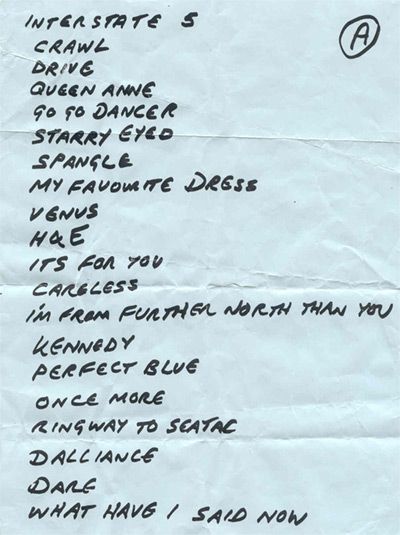 INTERSTATE 5
A
CRAWL
DRIVE
QUEEN ANNE
GO GO DANCER
STARRY EYED
SPANGLE
MY FAVOURITE DRESS
VENUS
H&E
ITS FOR YOU
CARELESS
I'M FROM FURTHER NORTH THAN YOU
KENNEDY
PERFECT BLUE
ONCE MORE
RINGWAY TO SEATAC
DALLIANCE
DARE
WHAT HAVE I SAID NOW